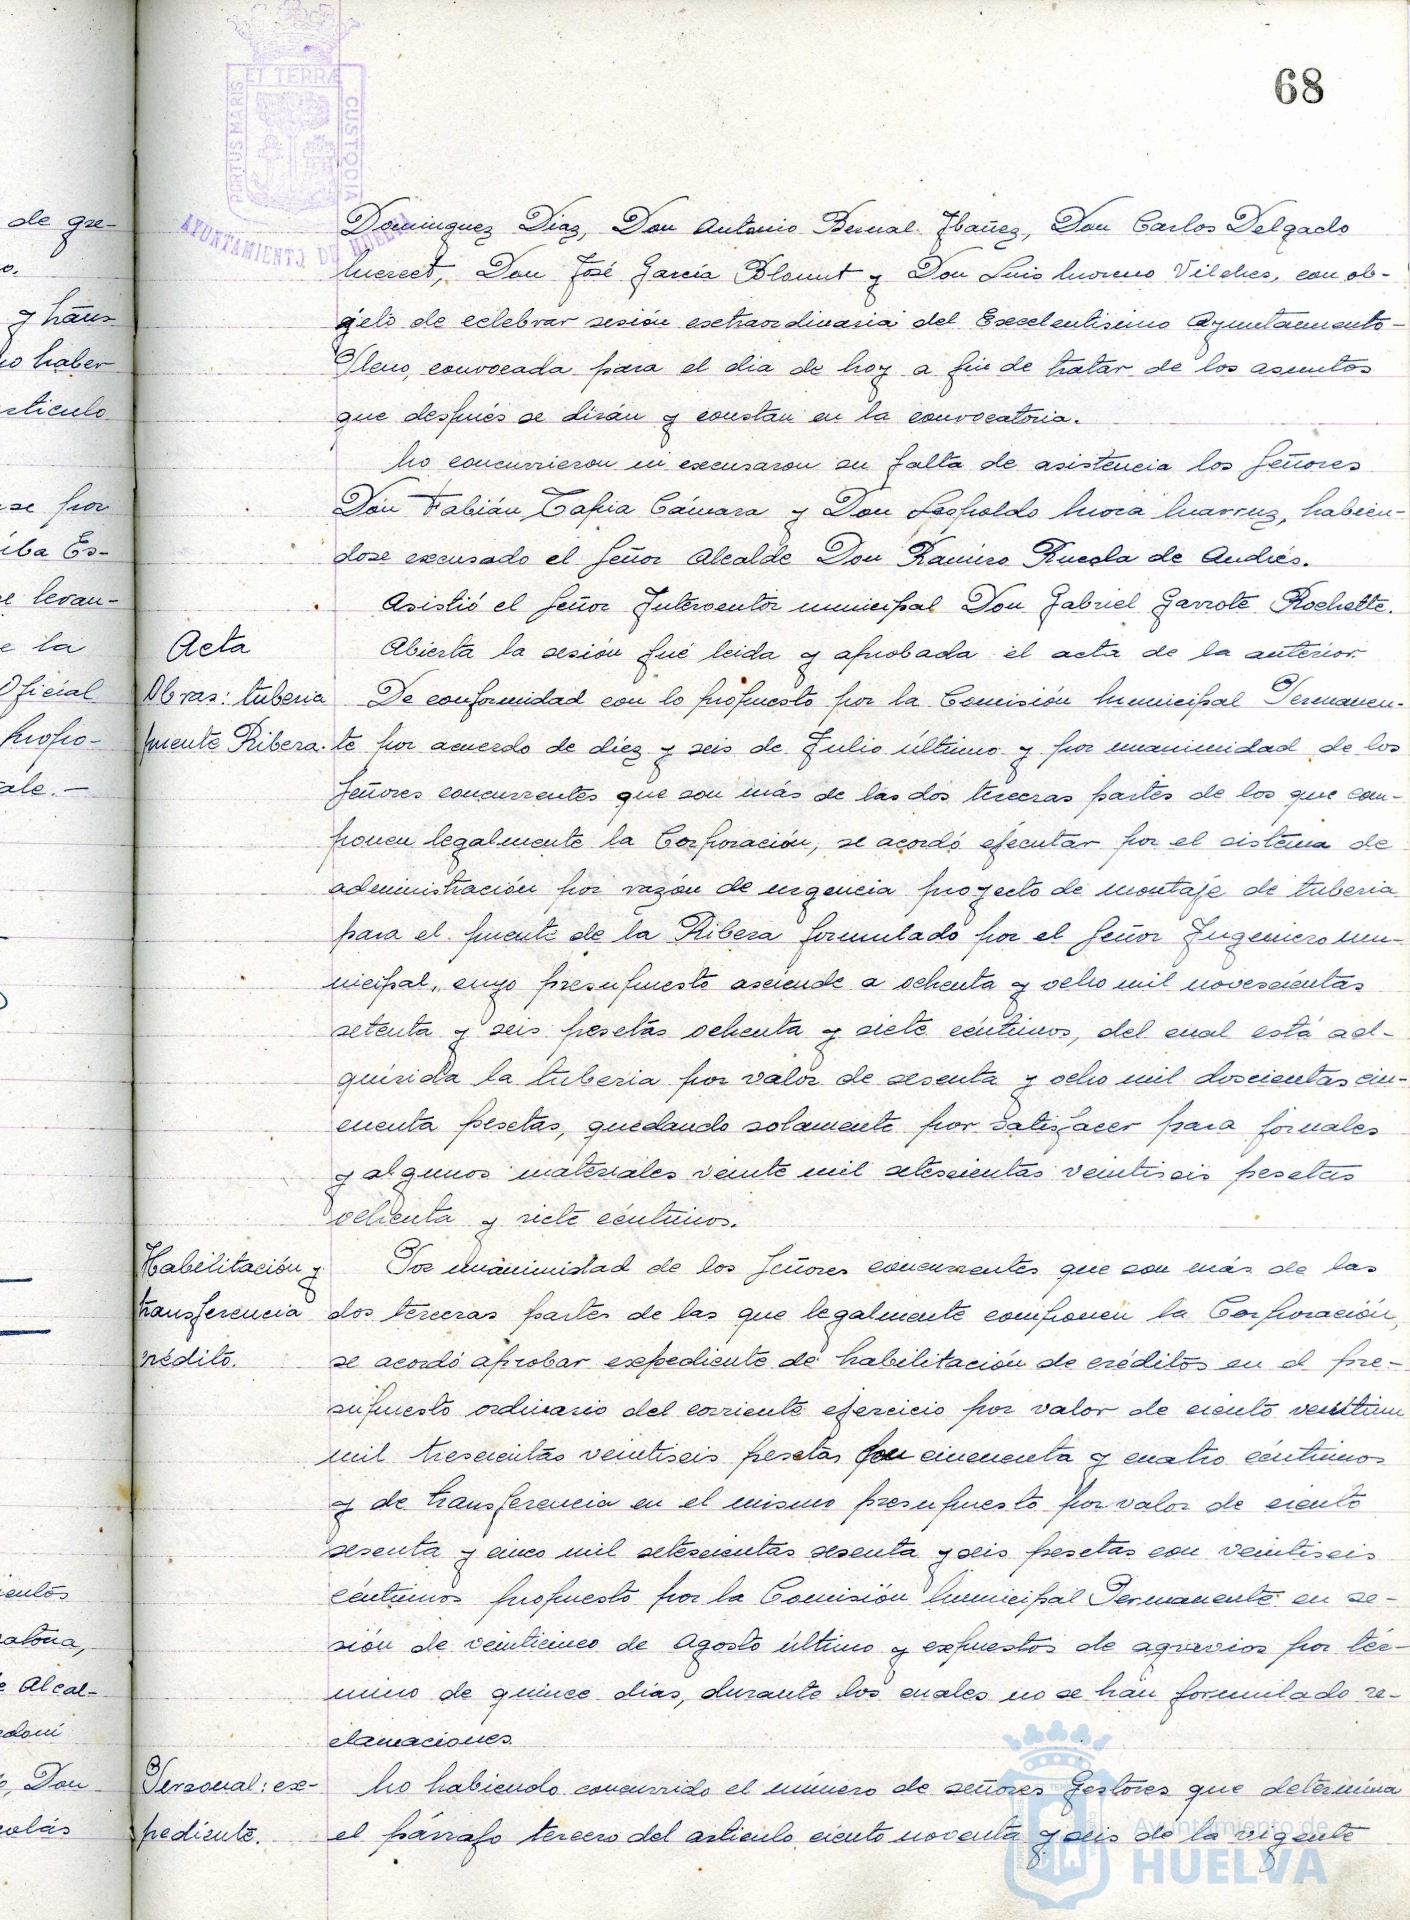 68
PORTUS MARIS ET TERRÆ CUSTODIA
AYUNTAMIENTO DE HUELVA
de gre-
o.
y trans
no haber
articulo
se por
iba Es-
se levan-
e la
Oficial
propo-
ale.-
ientos
atoria,
e Alcal-
Don
olás
Dominguez Diaz, Don Antonio Bernal Ibañez, Don Carlos Delgado
Don José García Blomut y Don Luis Moreno Vilches, con ob-
jeto de celebrar sesión extraordinaria del Excelentisimo Ayuntamiento-
Pleno, convocada para el dia de hoy a fin de tratar de los asuntos
que después se dirán y constan en la convocatoria.
No concurrieron ni excusaron su falta de asistencia los Señores
Don Fabián Tapia Cámara y Don Leopoldo Mora habien-
dose excusado el Señor Alcalde Don Ramiro Rueda de Andrés.
Asistió el Señor Interventor municipal Don Gabriel Garrote Rochette.
Acta
Abierta la sesión fué leida y aprobada el acta de la anterior.
Obras: tuberia
puente Ribera.
De conformidad con lo propuesto por la Comisión Municipal Permanen-
te por acuerdo de diez y seis de Julio ultimo y por unanimidad de los
Señores concurrentes que son más de las dos terceras partes de los que com-
ponen legalmente la Corporación, se acordó ejecutar por el sistema de
administración por razón de urgencia proyecto de montaje de tuberia
para el puente de la Ribera formulado por el Señor Ingeniero mu-
nicipal, cuyo presupuesto asciende a ochenta y ocho mil novescientas
setenta y seis pesetas ochenta y siete céntimos, del cual está ad-
quirida la tuberia por valor de sesenta y ocho mil doscientas cin-
cuenta pesetas, quedando solamente por satisfacer para jornales
y algunos materiales veinte mil setescientas veintiseis pesetas
ochenta y siete céntimos.
Habilitación y
transferencia
crédito.
Por unanimidad de los Señores concurrentes que son más de las
dos terceras partes de las que legalmente componen la Corporación,
se acordó aprobar expediente de habilitación de créditos en el pre-
supuesto ordinario del corriente ejercicio por valor de ciento veintiun
mil trescientas veintiseis pesetas con cincuenta y cuatro céntimos
y de transferencia en el mismo presupuesto por valor de ciento
sesenta y cinco mil setescientas sesenta y seis pesetas con veintiseis
céntimos propuesto por la Comisión Municipal Permanente en se-
sión de veinticinco de Agosto último y expuestos de agravios por tér-
mino de quince dias, durante los cuales no se han formulado re-
clamaciones.
Personal: ex-
pediente.
No habiendo concurrido el número de señores Gestores que determina
el párrafo tercero del articulo ciento noventa y seis de la vigente
Ayuntamiento de
HUELVA